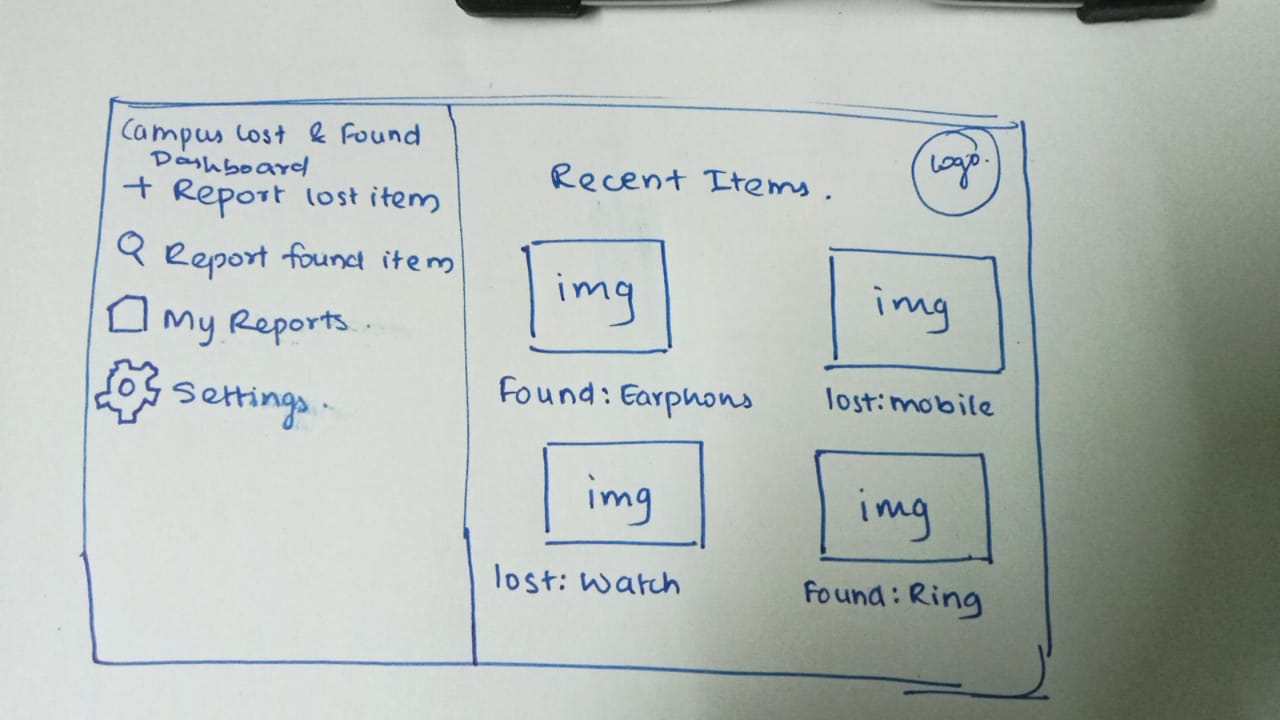 Campus lost & Found
Dashboard
+ Report lost item
Report found item
My Reports.
Settings.
Recent Items.
Logo.
img
img
Found: Earphons
lost: mobile
img
img
lost: Watch
Found: Ring